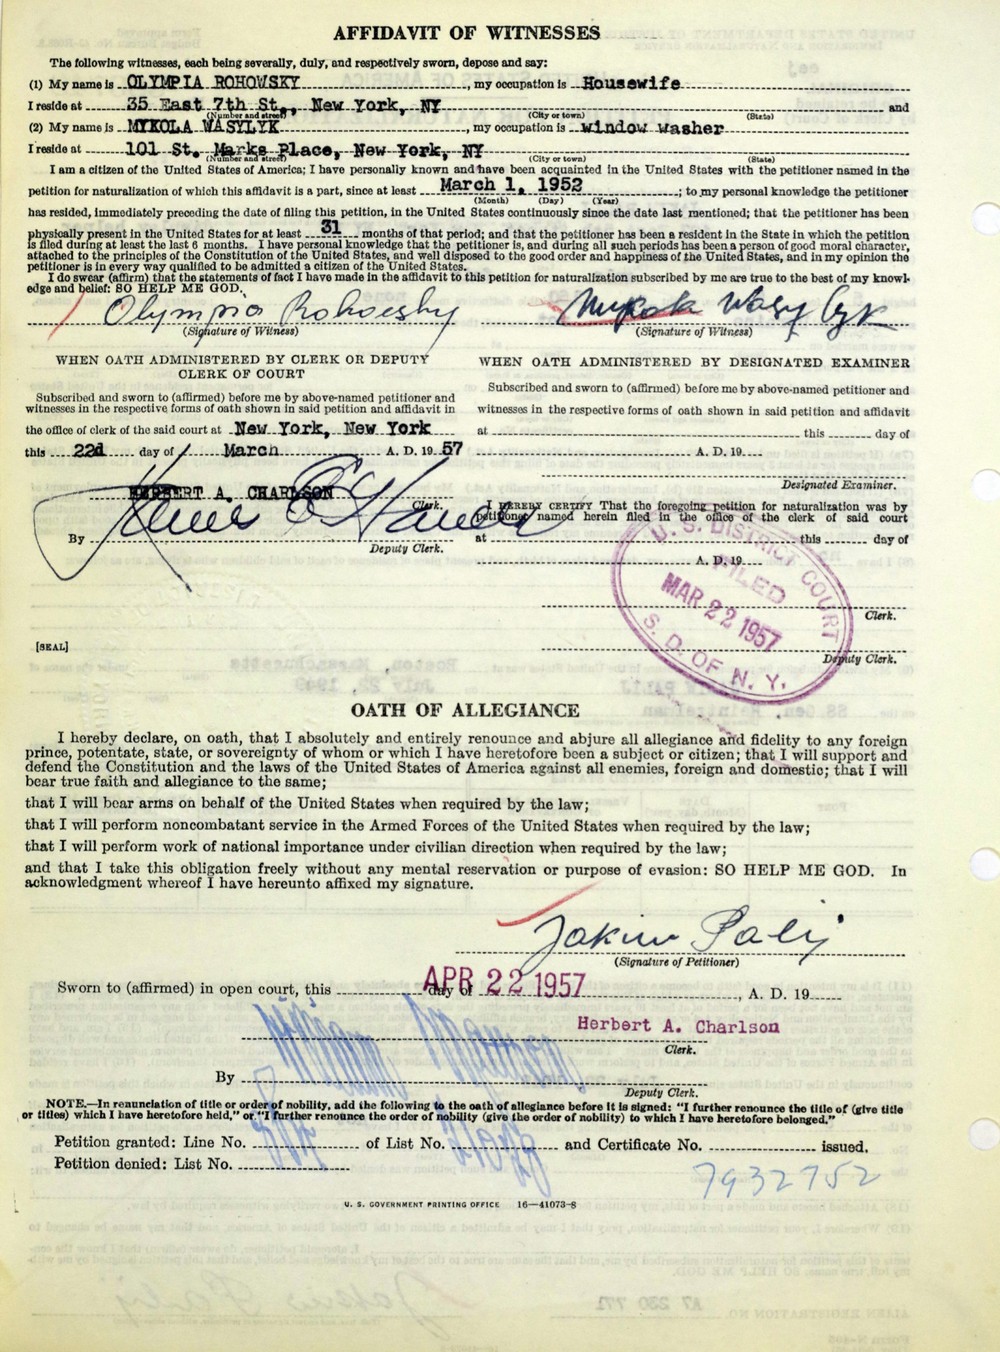 AFFIDAVIT OF WITNESSES
The following witnesses, each being severally, duly, and respectively sworn, depose and say:
(1) My name is OLYMPIA ROHOWSKY, my occupation is Housewife
I reside at 35 East 7th St., New York, NY and
(Number and street) (City or town) (State)
(2) My name is MYKOLA WASYLYK, my occupation is window washer
I reside at 101 St. Marks Place, New York, NY
(Number and street) (City or town) (State)
I am a citizen of the United States of America; I have personally known and have been acquainted in the United States with the petitioner named in the
petition for naturalization of which this affidavit is a part, since at least March 1, 1952; to my personal knowledge the petitioner
(Month) (Day) (Year)
has resided, immediately preceding the date of filing this petition, in the United States continuously since the date last mentioned; that the petitioner has been
physically present in the United States for at least 31 months of that period; and that the petitioner has been a resident in the State in which the petition
is filed during at least the last 6 months. I have personal knowledge that the petitioner is, and during all such periods has been a person of good moral character,
attached to the principles of the Constitution of the United States, and well disposed to the good order and happiness of the United States, and in my opinion the
petitioner is in every way qualified to be admitted a citizen of the United States.
I do swear (affirm) that the statements of fact I have made in the affidavit to this petition for naturalization subscribed by me are true to the best of my knowl-
edge and belief: SO HELP ME GOD.
Olympia Rohowsky Mykola Wasylyk
(Signature of Witness) (Signature of Witness)
WHEN OATH ADMINISTERED BY CLERK OR DEPUTY
CLERK OF COURT
Subscribed and sworn to (affirmed) before me by above-named petitioner and
witnesses in the respective forms of oath shown in said petition and affidavit in
the office of clerk of the said court at New York, New York
this 22d day of March A. D. 19 57
HERBERT A. CHARLSON
Clerk.
By
Deputy Clerk.
[SEAL]
WHEN OATH ADMINISTERED BY DESIGNATED EXAMINER
Subscribed and sworn to (affirmed) before me by above-named petitioner and
witnesses in the respective forms of oath shown in said petition and affidavit
at this day of
A. D. 19
Designated Examiner.
I HEREBY CERTIFY That the foregoing petition for naturalization was by
petitioner named herein filed in the office of the clerk of said court
at this day of
A. D. 19
Clerk.
Deputy Clerk.
U. S. DISTRICT COURT
FILED
MAR 22 1957
S. D. OF N. Y.
OATH OF ALLEGIANCE
I hereby declare, on oath, that I absolutely and entirely renounce and abjure all allegiance and fidelity to any foreign
prince, potentate, state, or sovereignty of whom or which I have heretofore been a subject or citizen; that I will support and
defend the Constitution and the laws of the United States of America against all enemies, foreign and domestic; that I will
bear true faith and allegiance to the same;
that I will bear arms on behalf of the United States when required by the law;
that I will perform noncombatant service in the Armed Forces of the United States when required by the law;
that I will perform work of national importance under civilian direction when required by the law;
and that I take this obligation freely without any mental reservation or purpose of evasion: SO HELP ME GOD. In
acknowledgment whereof I have hereunto affixed my signature.
Jakiw Palij
(Signature of Petitioner)
Sworn to (affirmed) in open court, this day of APR 22 1957, A. D. 19
Herbert A. Charlson
Clerk.
By
Deputy Clerk.
NOTE.—In renunciation of title or order of nobility, add the following to the oath of allegiance before it is signed: "I further renounce the title of (give title
or titles) which I have heretofore held," or "I further renounce the order of nobility (give the order of nobility) to which I have heretofore belonged."
Petition granted: Line No. of List No. and Certificate No. issued.
Petition denied: List No.
7932752
U. S. GOVERNMENT PRINTING OFFICE 16—41073-8